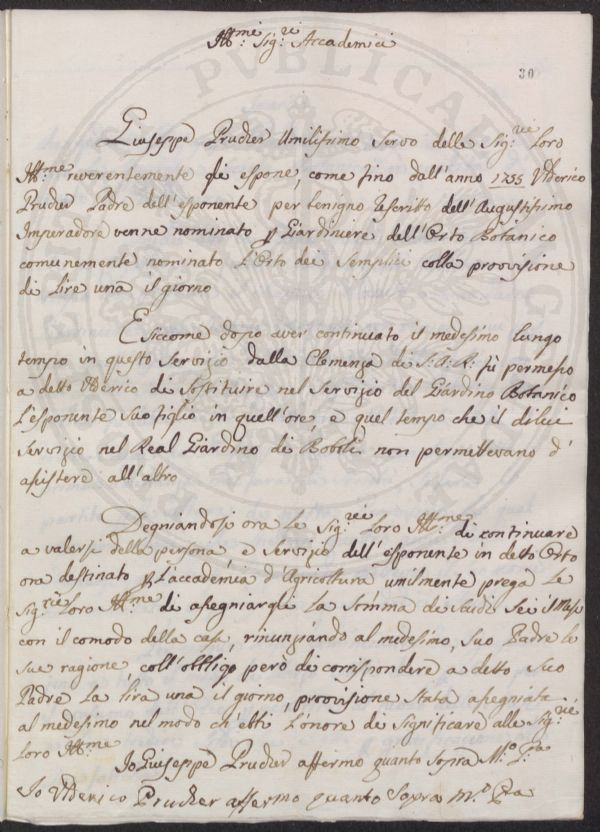 Ill.mi Sig.ri Accademici
30
Giuseppe Prucker Umilissimo servo delle Sig.rie Loro
Ill.me reverentemente gli espone, come fino dall'anno 1755 Uderico
Prucker Padre dell'esponente per benigno rescritto dell'Augustissimo
Imperadore venne nominato p Giardiniere dell'Orto Botanico
comunemente nominato l'Orto dei Semplici colla provvisione
di lire una il giorno
E siccome dopo aver continuato il medesimo lungo
tempo in questo servizio dalla Clemenza di S: A: R: fù permesso
a detto Uderico di sostituire nel servizio del Giardino Botanico
l'esponente suo figlio in quell'ore, e quel tempo che il di lui
servizio nel Real Giardino di Boboli non permettevano d'
assistere all'altro
Degniandosi ora le Sig.rie Loro Ill.me di continuare
a valersi della persona, e servizio dell'esponente in detto Orto
ora destinato p l'accademia d'Agricoltura umilmente prega le
Sig.rie Loro Ill.me di assegniargli la somma di scudi sei il Mese
con il comodo della casa, rinunziando al medesimo, suo Padre le
sue ragione coll'obbligo però di corrispondere a detto suo
Padre la lira una il giorno, provvisione stata assegniata
al medesimo nel modo ch'ebbi l'onore di significare alle Sig.rie
Loro Ill.me
Io Giuseppe Prucker affermo quanto sopra M.o P.a
Io Uderico Prucker affermo quanto sopra m.o P.a